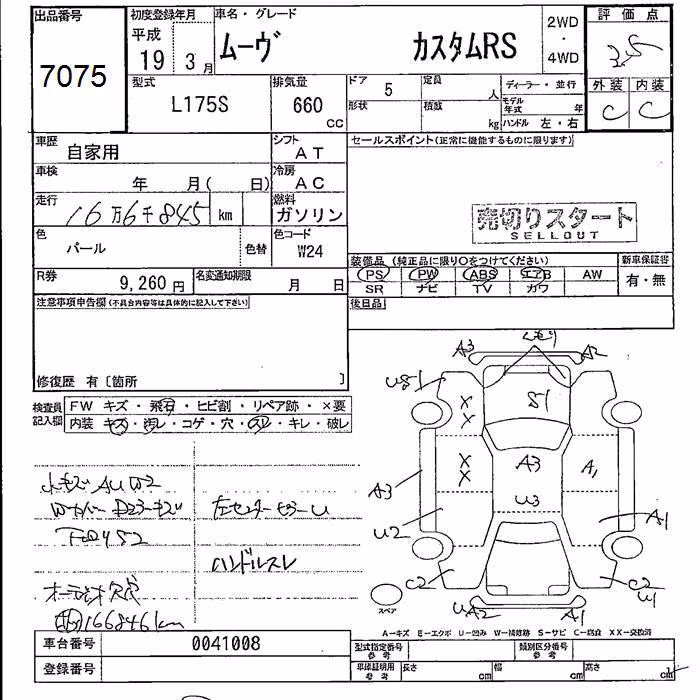 出品番号
7075
初度登録年月
平成
19 3月
車名・グレード
ムーヴ カスタムRS
2WD
・
4WD
評価点
3.5
外装 内装
C C
型式
L175S
排気量
660
CC
ドア
5
形状
定員
人
積載
kg
ディーラー・並行
モデル年式 年
ハンドル 左・右
車歴
自家用
シフト
AT
車検
年 月( 日)
冷房
AC
走行
16万6千845 km
燃料
ガソリン
色
パール
色替
色コード
W24
R券
9,260円
名変通知期限
月 日
セールスポイント(正常に機能するものに限ります)
売切りスタート
SELLOUT
装備品(純正品に限り○をつけてください)
PS PW ABS エアB AW
SR ナビ TV カワ
新車保証書
有・無
後日品
注意事項申告欄(不具合内容等は具体的に記入して下さい)
修復歴 有〔箇所 〕
検査員記入欄
FW キズ・飛石・ヒビ割・リペア跡・×要
内装 キズ・汚レ・コゲ・穴・スレ・キレ・破レ
ハンドルスレ
166846km
A3 A2
U81 S1
X X
X X
A3 A1
U3
A3
U2 A1
C2 C2
U1
UA2 A1
スペア
A-キズ E-エクボ U-凹み W-補修跡 S-サビ C-腐食 XX-交換済
車台番号 0041008
登録番号
型式指定番号
参考
類別区分番号
参考
車庫証明用
参考
長さ cm 幅 cm 高さ cm